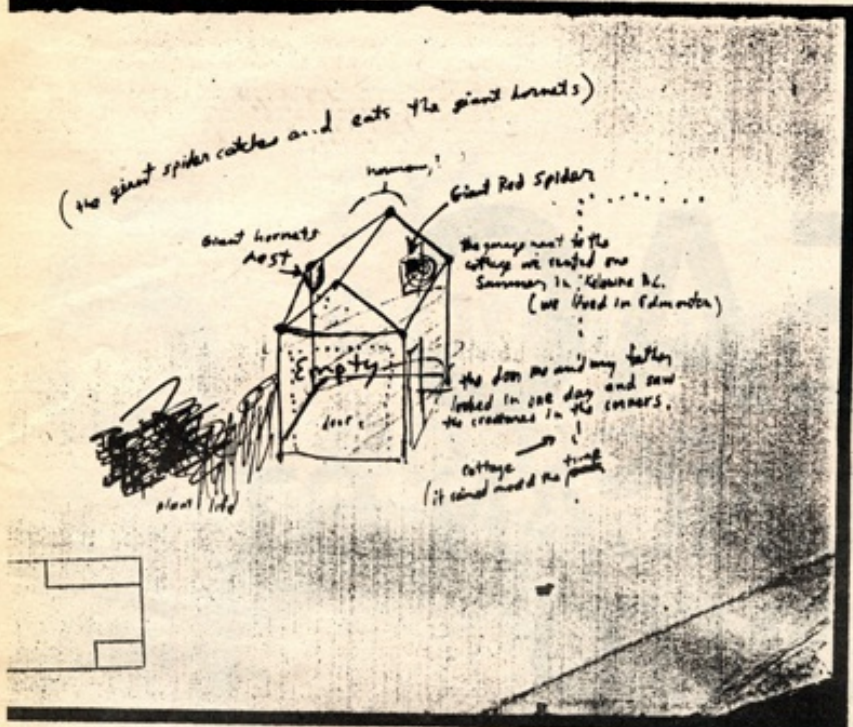 (the giant spider catches and eats the giant hornets)
Giant Red Spider
Giant hornets
nest
the garage next to the
cottage we rented one
Summer in Kelowna B.C.
(we lived in Edmonton)
Empty
door
the door me and my father
looked in one day and saw
the creatures in the corners.
cottage
(it rained most of the
plant life